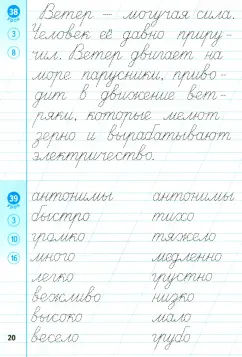 38
урок
3
8
Ветер – могучая сила.
Человек её давно приру-
чил. Ветер двигает на
море парусники, приво-
дит в движение вет-
ряки, которые мелют
зерно и вырабатывают
электричество.
39
урок
3
10
16
антонимы антонимы
быстро тихо
громко тяжело
много медленно
легко грустно
вежливо низко
высоко мало
весело грубо
20